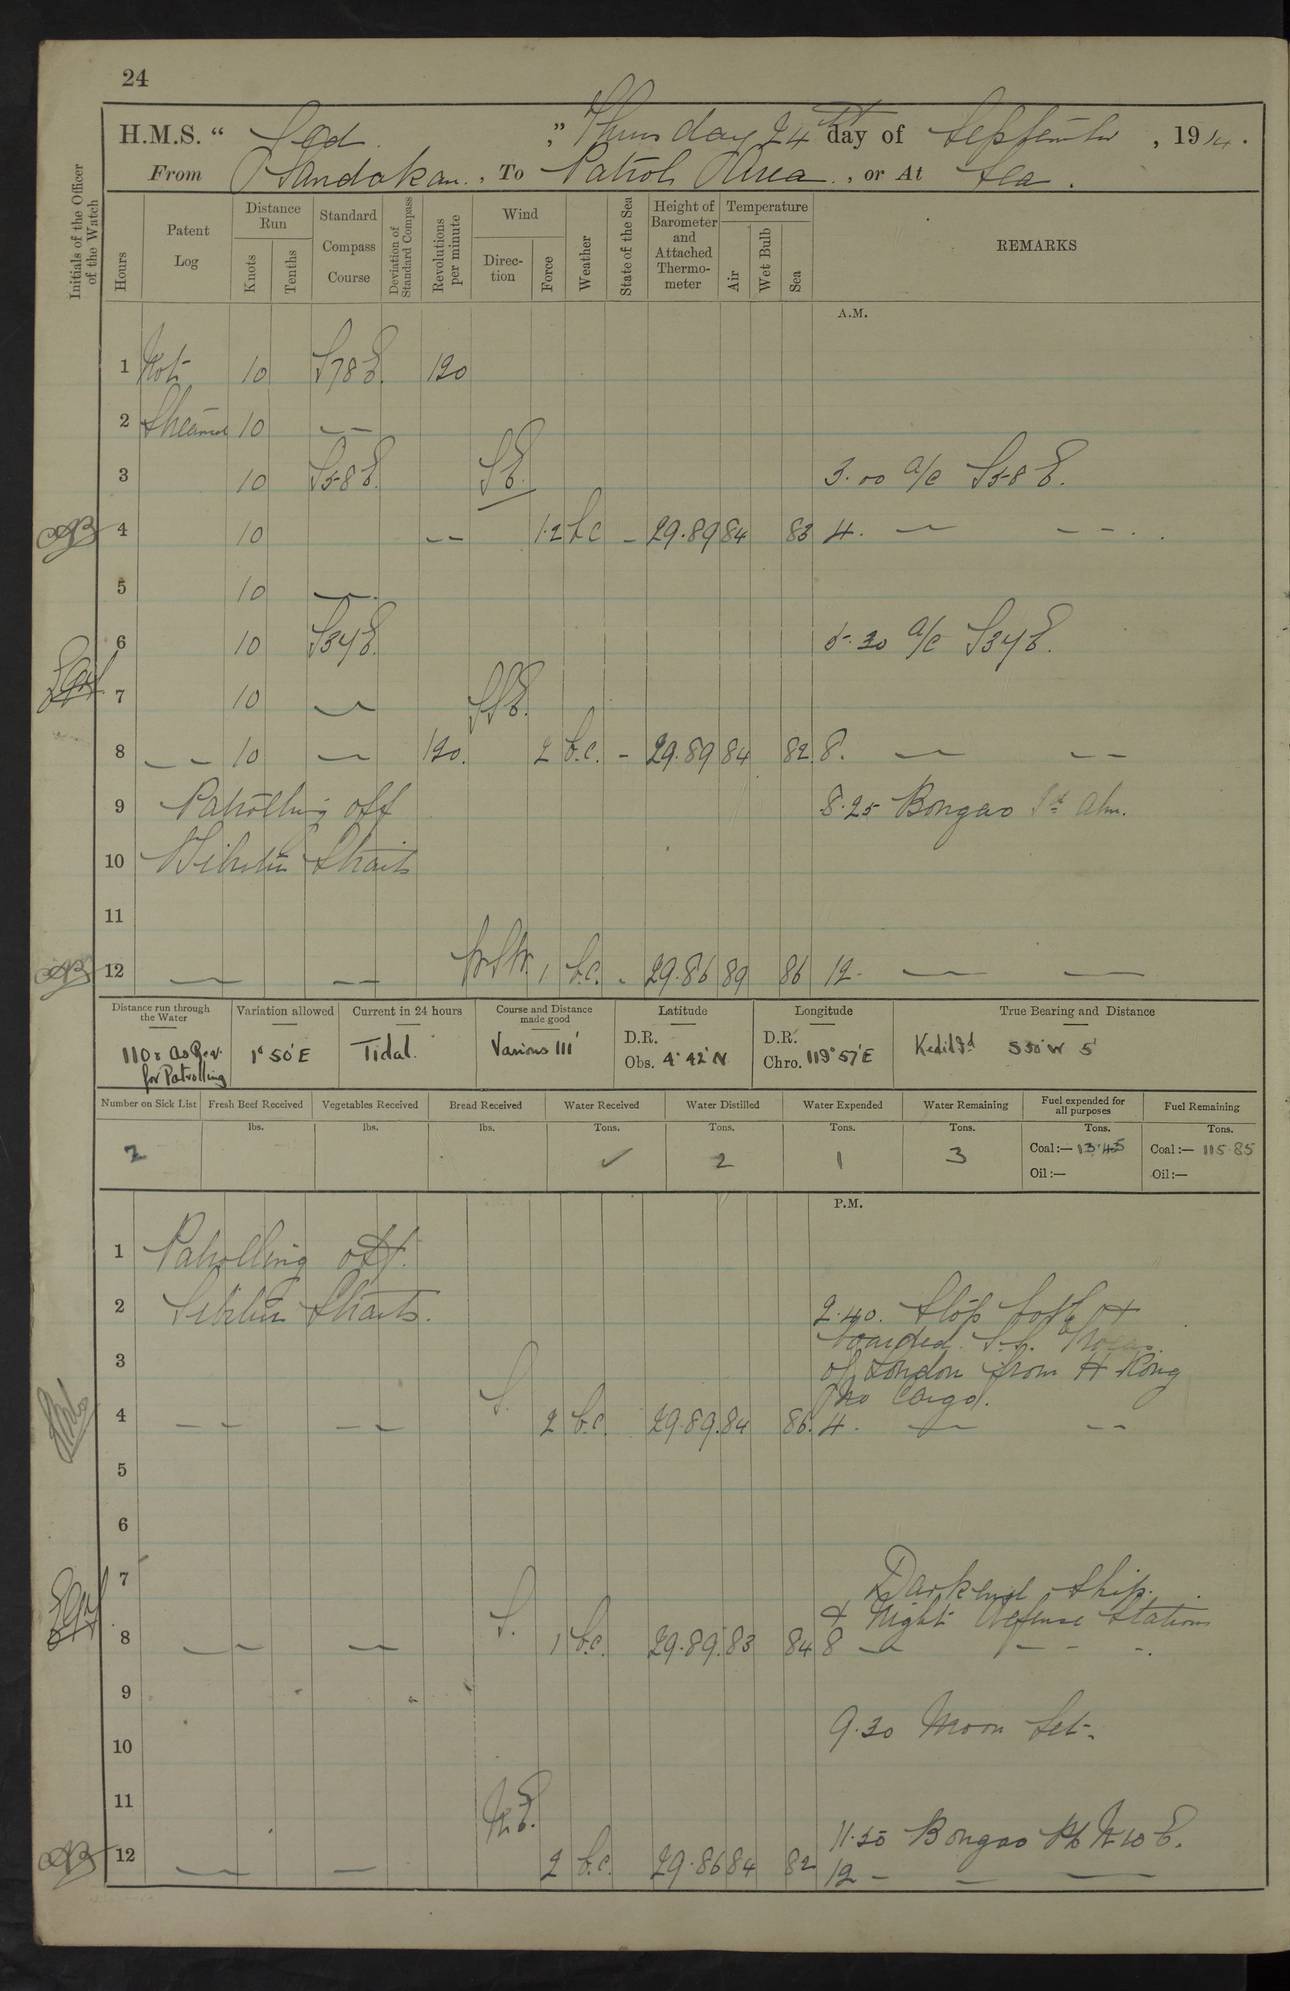 24
H.M.S. " " Thursday 24th day of September, 1914.
From Sandakan, To Patrol Area, or At Sea.
Initials of the Officer of the Watch
Hours
Patent Log
Distance Run
Knots
Tenths
Standard Compass Course
Deviation of Standard Compass
Revolutions per minute
Wind
Direction
Force
Weather
State of the Sea
Height of Barometer and Attached Thermometer
Temperature
Air
Wet Bulb
Sea
REMARKS
A.M.
1 Not 10 S78E. 120
2 Streamed 10 — —
3 10 S58E. SE. 3.00 a/c S58E.
4 10 — — 1.2 bc - 29.89 84 83 4. — — —
5 10 —
6 10 S34E. 5.30 a/c S34E.
7 10 — SSE.
8 — — 10 — 120. 2 b.c. - 29.89 84 82 8. — — —
9 Patrolling off 8.25 Bongao Id abm.
10 Sibutu Straits
11
12 — — — WSW. 1 b.c. - 29.86 89 86 12 — —
Distance run through the Water
Variation allowed
Current in 24 hours
Course and Distance made good
Latitude
Longitude
True Bearing and Distance
110 & as Req. for Patrolling
1° 50' E
Tidal.
Various 111'
D.R.
Obs. 4° 42' N
D.R.
Chro. 119° 57' E
Id S50°W 5'
Number on Sick List
Fresh Beef Received
Vegetables Received
Bread Received
Water Received
Water Distilled
Water Expended
Water Remaining
Fuel expended for all purposes
Fuel Remaining
lbs. lbs. lbs. Tons. Tons. Tons. Tons. Tons. Tons.
2 ✓ 2 1 3 Coal:— 13.45 Coal:— 115.85
Oil:— Oil:—
P.M.
1 Patrolling off.
2 Sibutu Straits. 2.40. Stop both &
boarded S.S.
3 of London from H Kong
no Cargo.
4 — — — — S. 2 b.c. 29.89 84 86 4. — — —
5
6
7 Darkened ship.
& Night Defence Stations
8 — — — — S. 1 b.c. 29.89 83 84 8 — — — -.
9
9.30 Moon Set.
10
11 NE.
11.30 Bongao Pk N10E.
12 — — — 2 b.c. 29.86 84 82 12 — — —